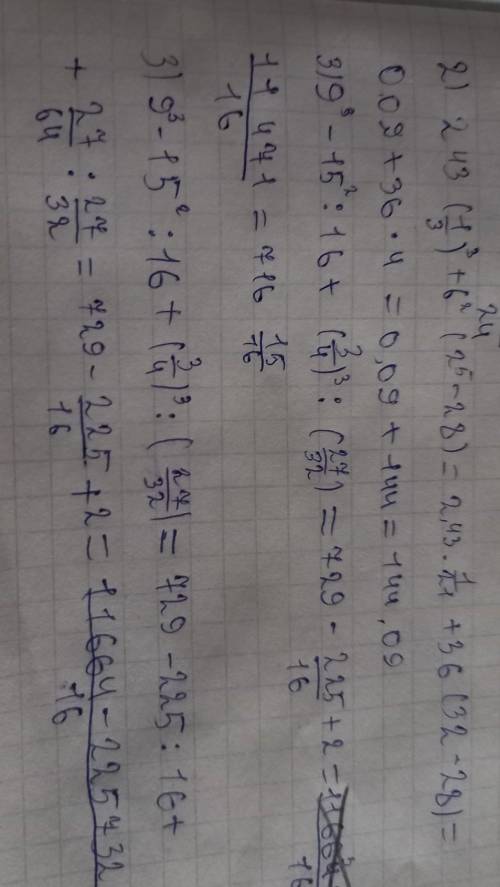 24
2) 2 43 (1/3)³ + 6² (2⁵ - 28) = 2,43 · 1/27 + 36 (32 - 28) =
0,09 + 36 · 4 = 0,09 + 144 = 144,09
3) 9³ - 15² : 16 + (3/4)³ : (27/32) = 729 - 225/16 + 2 =
11 471/16 = 716 15/16
3) 9³ - 15² : 16 + (3/4)³ : (27/32) = 729 - 225 : 16 +
+ 27/64 : 27/32 = 729 - 225/16 + 2 = 11664 - 225 + 32/16